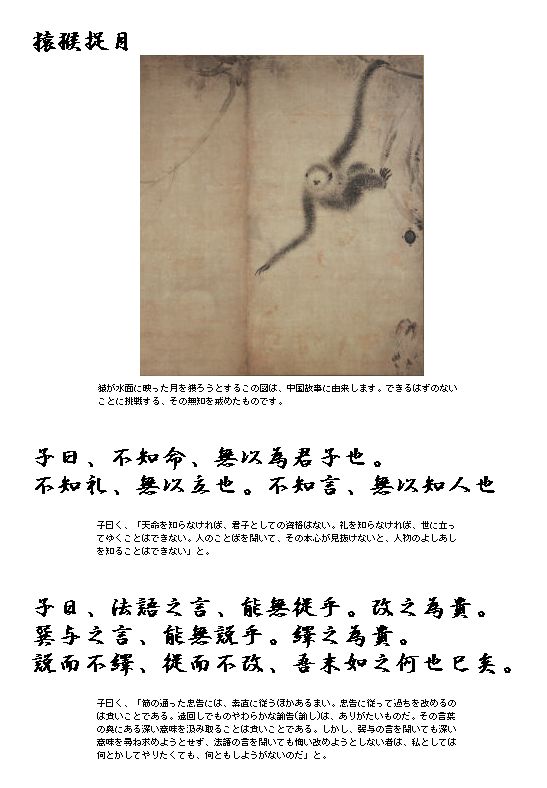 猿猴捉月
猿が水面に映った月を獲ろうとするこの図は、中国故事に由来します。できるはずのない
ことに挑戦する、その無知を戒めたものです。
子曰、不知命、無以為君子也。
不知礼、無以立也。不知言、無以知人也
子曰く、「天命を知らなければ、君子としての資格はない。礼を知らなければ、世に立っ
てゆくことはできない。人のことばを聞いて、その本心が見抜けないと、人物のよしあし
を知ることはできない」と。
子曰、法語之言、能無従乎。改之為貴。
巽与之言、能無説乎。繹之為貴。
説而不繹、従而不改、吾末如之何也已矣。
子曰く、「節の通った忠告には、素直に従うほかあるまい。忠告に従って過ちを改めるの
は良いことである。遠回しでものやわらかな諭告(諭し)は、ありがたいものだ。その言葉
の奥にある深い意味を汲み取ることは良いことである。しかし、巽与の言を聞いても深い
意味を尋ね求めようとせず、法語の言を聞いても悔い改めようとしない者は、私としては
何とかしてやりたくても、何ともしようがないのだ」と。